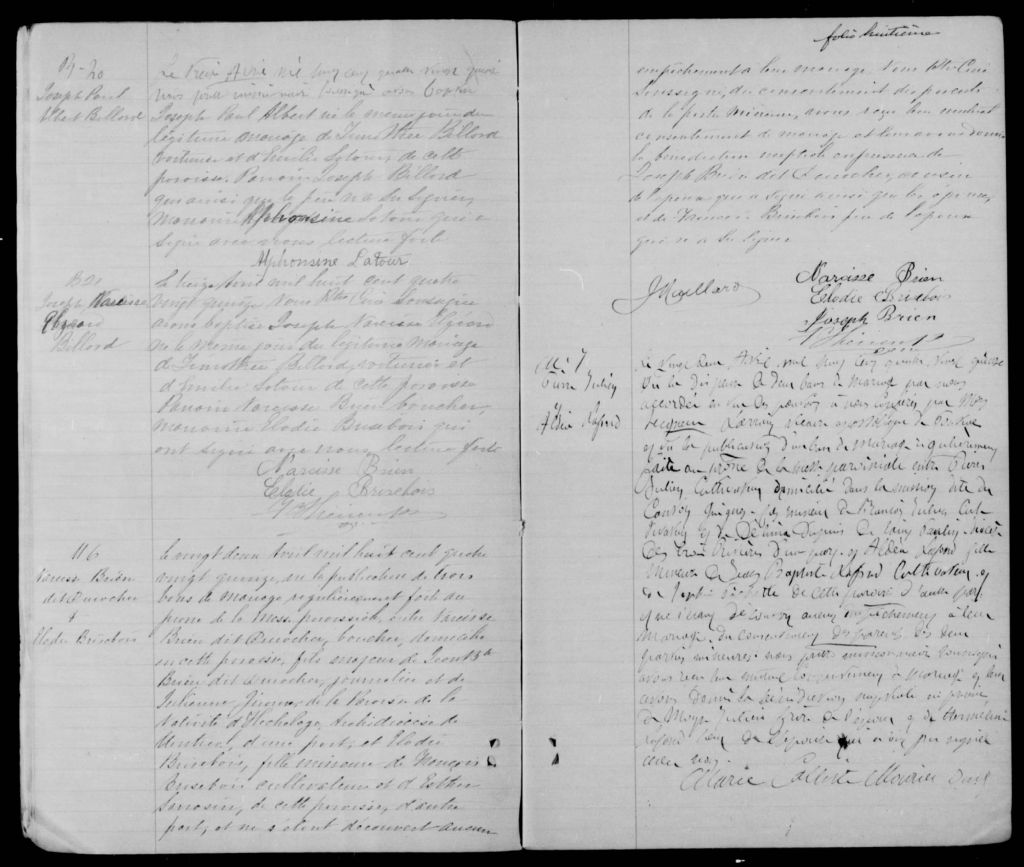 B-20
Joseph Paul
Albert Billard
Le treize Avril mil huit cent quatre vingt quinze
nous prêtre missionnaire soussigné avons baptisé
Joseph Paul Albert né le même jour du
légitime mariage de Timothée Billard
voiturier et d'Emélie Latour de cette
paroisse. Parrain Joseph Billard
qui ainsi que le père n'a su signer,
marraine Alphonsine Latour qui a
signé avec nous. Lecture faite
Alphonsine Latour
B 21
Joseph Narcisse
Billard
Le treize Avril mil huit cent quatre
vingt quinze Nous Ptre Curé soussigné
avons baptisé Joseph Narcisse
né le même jour du légitime mariage
de Timothée Billard, voiturier et
d'Emélie Latour de cette paroisse
Parrain Narcisse Brien boucher,
marraine Elodie Brisebois qui
ont signé avec nous, lecture faite
Narcisse Brien
Elodie Brisebois
M 6
Narcisse Brien
dit Durocher
+
Elodie Brisebois
Le vingt deux Avril mil huit cent quatre
vingt quinze, vu la publication de trois
bans de mariage régulièrement faite au
prône de la messe paroissiale, entre Narcisse
Brien dit Durocher, boucher, domicilié
en cette paroisse, fils majeur de Jean Bte
Brien dit Durocher, journalier et de
Julienne de la Paroisse de la
Nativité d'Hochelaga, Archidiocèse de
Montréal, d'une part; et Elodie
Brisebois, fille mineure de François
Brisebois cultivateur et d'Esther
de cette paroisse, d'autre
part; et ne s'étant découvert aucun
folio huitième
empêchement à leur mariage, Nous Ptre Curé
soussigné, du consentement des parents
de la partie mineure, avons reçu leur mutuel
consentement de mariage et leur avons donné
la bénédiction nuptiale en présence de
Joseph Brien dit Durocher, cousin
de l'époux qui a signé ainsi que les époux,
et de François Brisebois père de l'épouse
qui n'a su signer
Narcisse Brien
Elodie Brisebois
Joseph Brien
M 7
Pierre Julien
+
Alda Lafond
Le vingt deux Avril mil huit cent quatre vingt quinze
Vu la dispense de deux bans de mariage par nous
accordée en vue des pouvoirs à nous conférés par Mgr
Lorrain Vicaire apostolique de Pontiac
et vu la publication d'un ban de mariage régulièrement
faite au prône de la messe paroissiale entre Pierre
Julien Cultivateur domicilié dans la mission dite du
fils mineur de François Julien Cultivateur
et de
des Trois Rivières d'une part, et Alda Lafond fille
mineure de Jean Baptiste Lafond Cultivateur et
de de cette paroisse d'autre part
et ne s'étant découvert aucun empêchement à leur
mariage, du consentement des parents des deux
parties mineures nous prêtre missionnaire soussigné
avons reçu leur mutuel consentement de mariage et leur
avons donné la bénédiction nuptiale en présence
de Moyse Julien frère de l'époux et de
Lafond de l'épouse qui n'ont pu signer
avec nous.
Marie Celeste Mourier